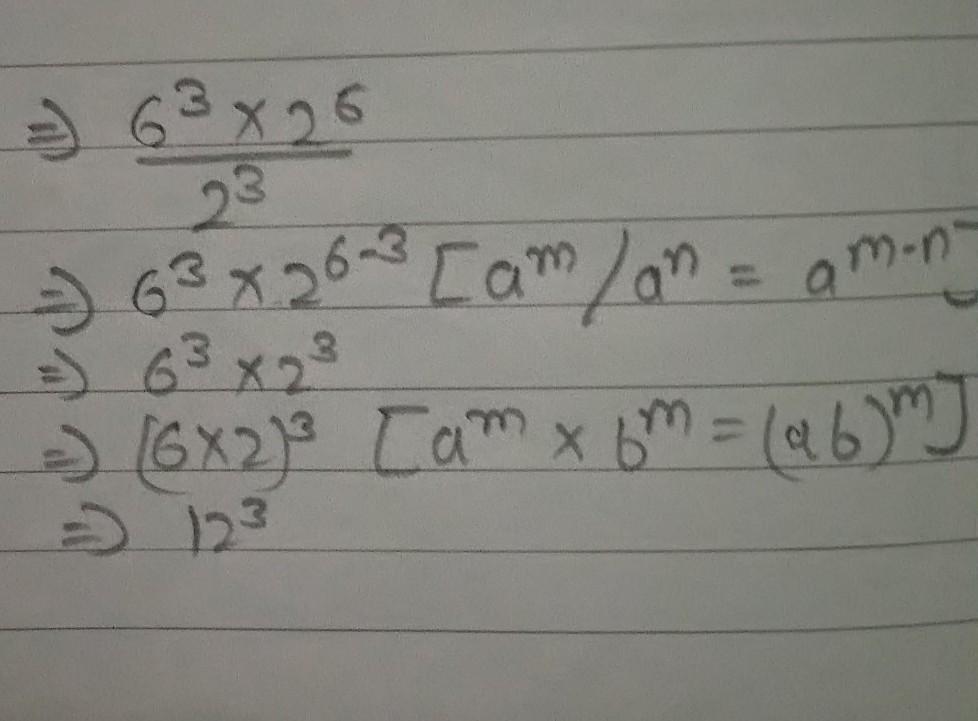 ⇒ 6³ × 2⁶ / 2³
⇒ 6³ × 2⁶⁻³ [aᵐ/aⁿ = aᵐ⁻ⁿ]
⇒ 6³ × 2³
⇒ (6×2)³ [aᵐ × bᵐ = (ab)ᵐ]
⇒ 12³